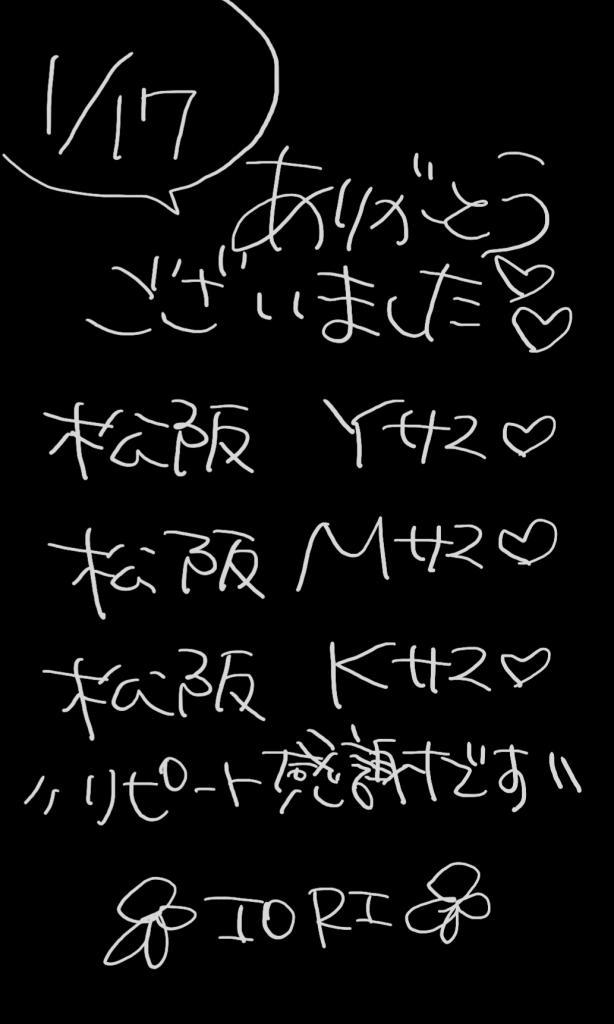 1/17
ありがとう
ございました♡♡
松阪 Yサマ♡
松阪 Mサマ♡
松阪 Kサマ♡
〃リピート感謝です〃
IORI